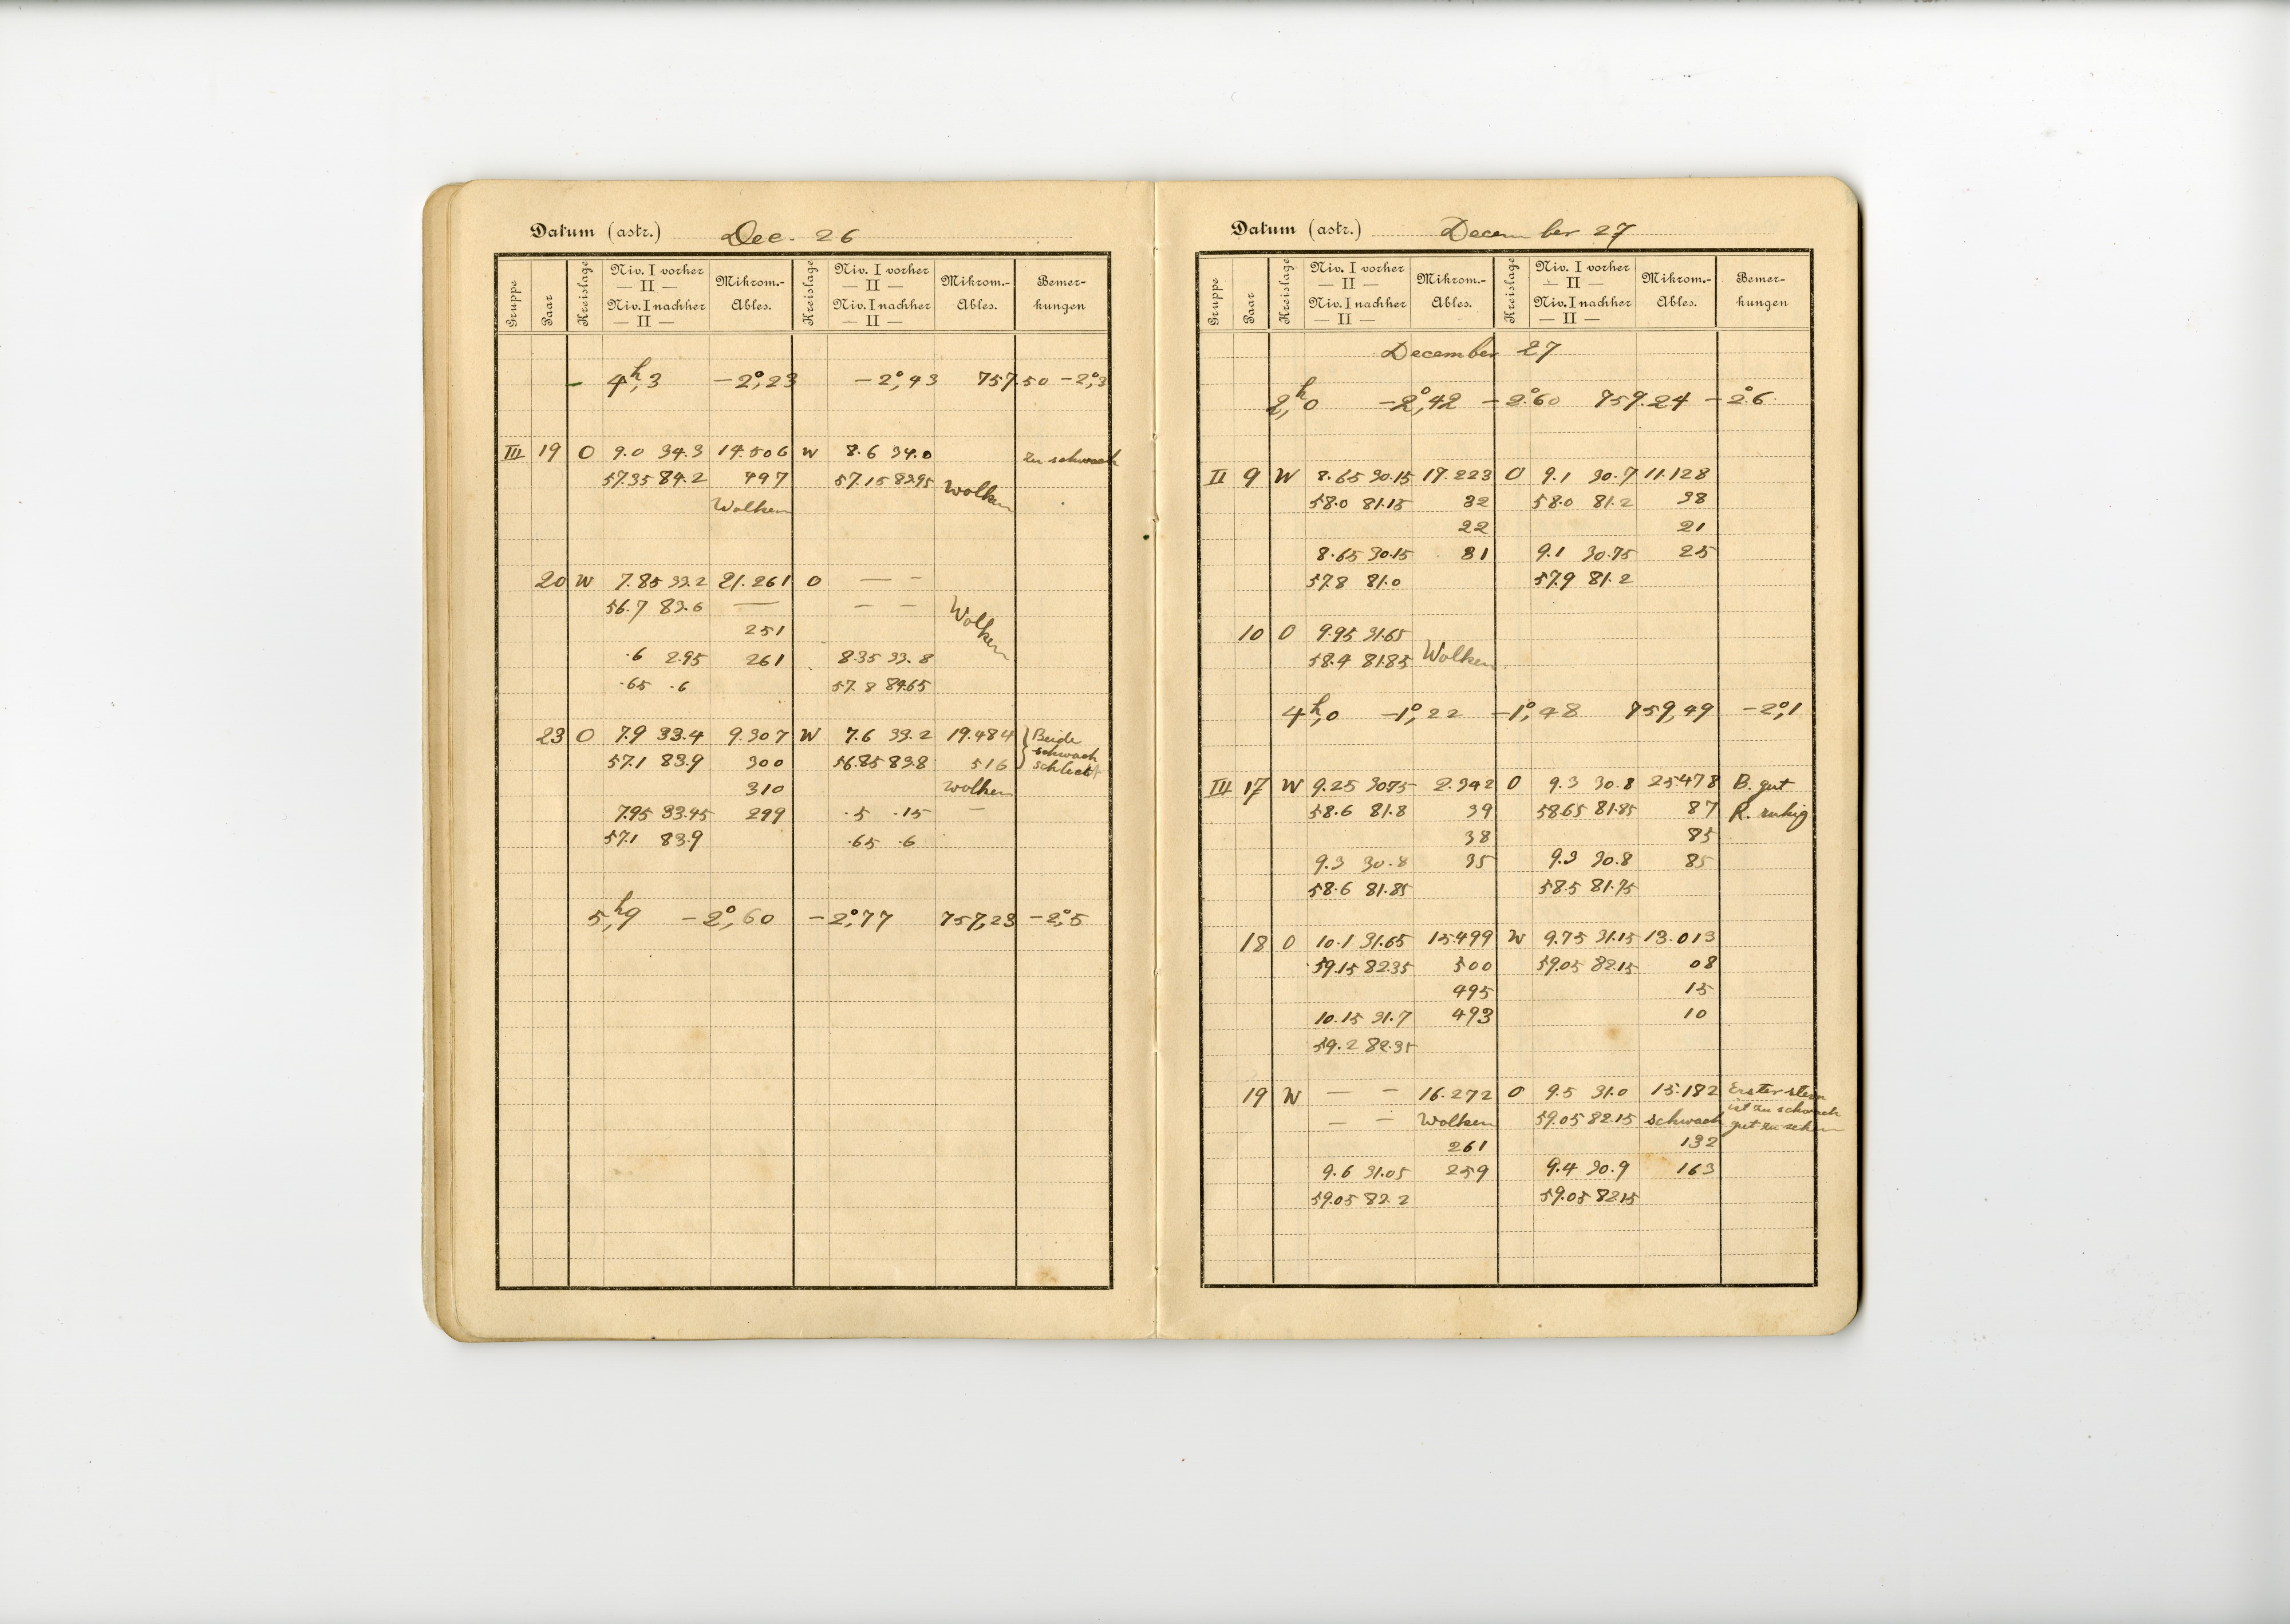 Datum (astr.) Dec. 26
Gruppe Paar Kreislage Niv. I vorher Mikrom.- Kreislage Niv. I vorher Mikrom.- Bemer-
— II — — II —
Niv. I nachher Ables. Niv. I nachher Ables. kungen
— II — — II —
– 4h,3 –2°,23 –2°,43 757.50 –2°,3
III 19 O 9.0 34.3 14.506 W 8.6 34.0 zu schwach
57.35 84.2 497 57.15 83.95 Wolken
Wolken
20 W 7.85 33.2 21.261 O — —
56.7 83.6 — — — Wolken
251
.6 2.95 261 8.35 33.8
.65 .6 57.8 84.65
23 O 7.9 33.4 9.307 W 7.6 33.2 19.484 } Beide
schwach
57.1 83.9 300 56.85 83.8 516 schlecht
310 Wolken
7.95 33.45 299 .5 .15 —
57.1 83.9 .65 .6
5,h9 –2°,60 –2°,77 757,23 –2°,5
Datum (astr.) December 27
Gruppe Paar Kreislage Niv. I vorher Mikrom.- Kreislage Niv. I vorher Mikrom.- Bemer-
— II — — II —
Niv. I nachher Ables. Niv. I nachher Ables. kungen
— II — — II —
December 27
2,h0 –2°,42 –2°60 759.24 –2°6
II 9 W 8.65 30.15 17.223 O 9.1 30.7 11.128
58.0 81.15 32 58.0 81.2 38
22 21
8.65 30.15 31 9.1 30.75 25
57.8 81.0 57.9 81.2
10 O 9.95 31.65
58.4 81.85 Wolken
4h,0 –1°,22 –1°,48 759,49 –2°,1
III 17 W 9.25 30.75 2.342 O 9.3 30.8 25.478 B. gut
58.6 81.8 39 58.65 81.85 87 R. ruhig
38 85
9.3 30.8 35 9.3 30.8 85
58.6 81.85 58.5 81.75
18 O 10.1 31.65 15.499 W 9.75 31.15 13.013
59.15 82.35 500 59.05 82.15 08
495 15
10.15 31.7 493 10
59.2 82.35
19 W — — 16.272 O 9.5 31.0 15.182 Erster stern
ist zu schwach
— — Wolken 59.05 82.15 schwach gut zu sehen
261 132
9.6 31.05 259 9.4 30.9 163
59.05 82.2 59.05 82.15